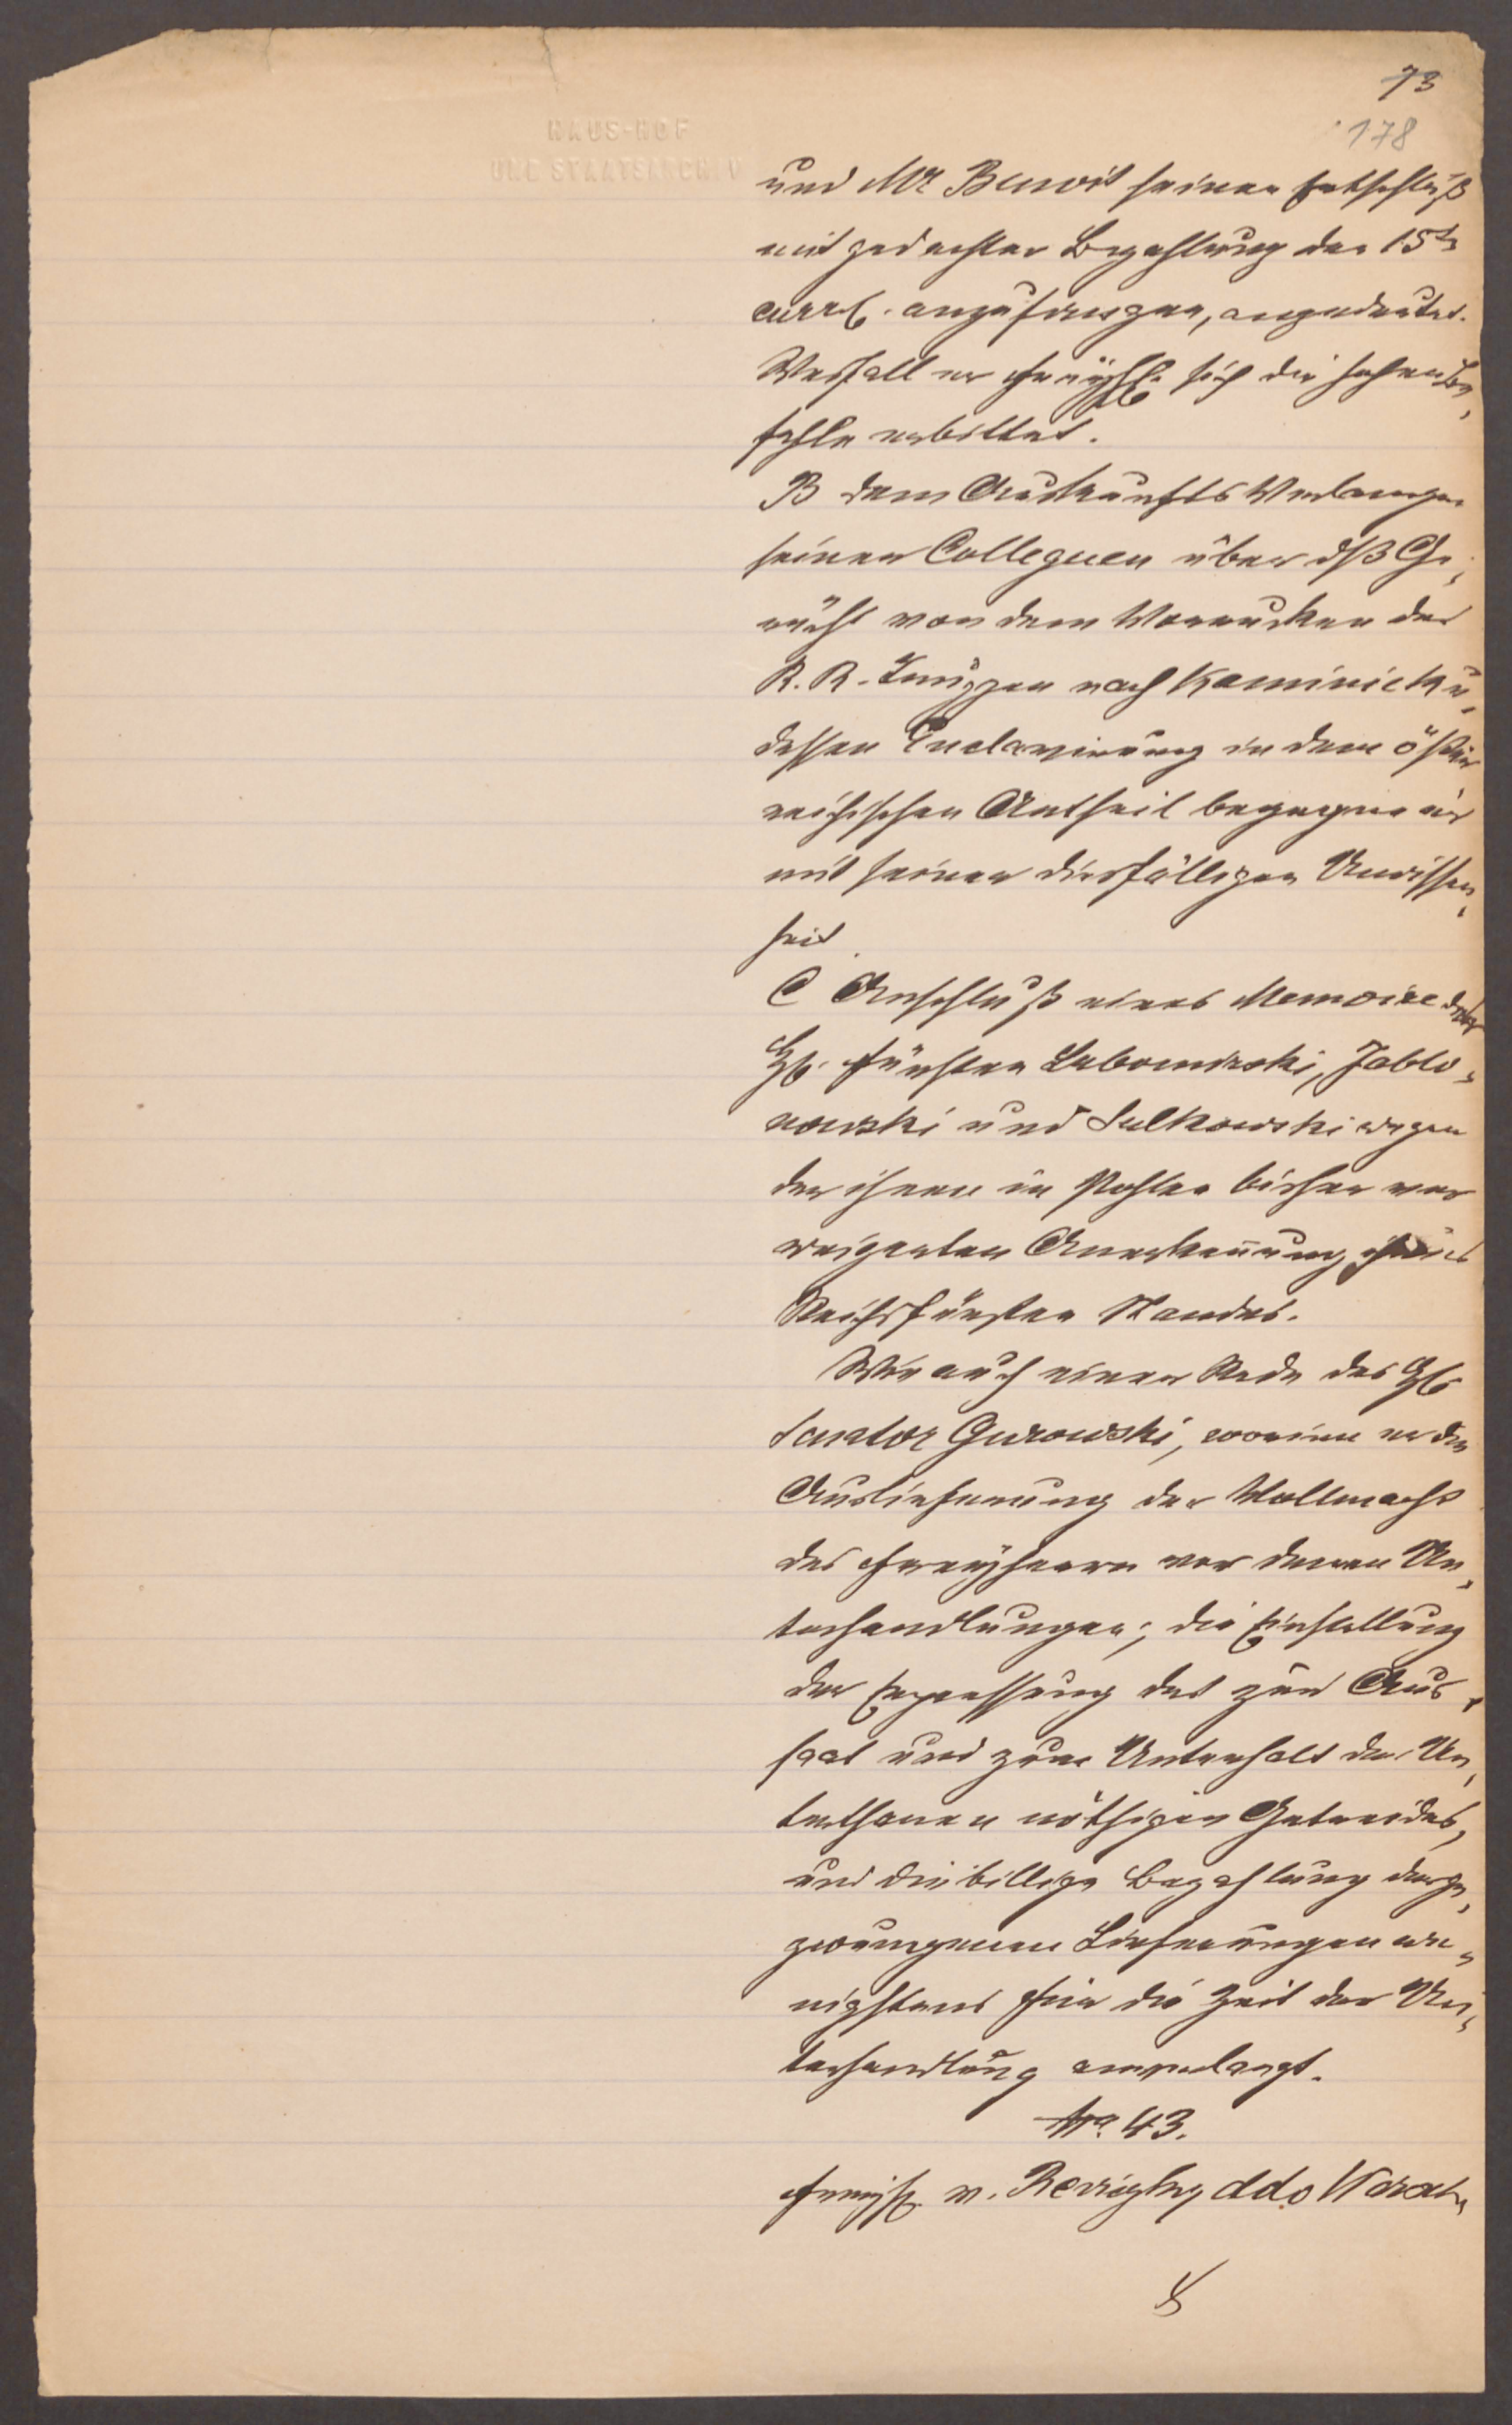 73
178
HAUS-HOF
UND STAATSARCHIV
und Mr Benoit seinen Entschluß
mit gedachter Bezahlung den 15ten
curr. anzufangen, angedeutet.
Weßfall er sich die hohen Be„
fehle erbittet.
B dem Auskunfts Verlangen
seiner Colleguen über dß Ge„
rücht von dem Vorrucken der
K. K. Truppen nach Kaminiek u„
dessen Enclavirung in dem öster
reichischen Antheil begegne er
mit seiner diesfälligen Unwissen„
heit.
C Anschluß eines Memoire der
H. Fürsten Lubomirski, Jablo„
nowski und Sulkowski wegen
der ihnen in Pohlen bisher ver
weigerten Anerkennung ihres
Reichsfürsten Standes.
Wie auch einer Rede des H.
Senator Gurowski, worinn er die
Auslieferung der Vollmacht
des Freyherrn vor denen Un„
terhandlungen; die Einstellung
der Erpressung des zur Aus„
saat und zum Unterhalt der Un„
terthanen nöthigen Getreides,
und die billige Bezahlung der ge„
zwungenen Lieferungen we„
nigstens für die Zeit der Un„
terhandlung anverlangt.
No. 43.
Freyh. v. Reviczky ddo Warsch„